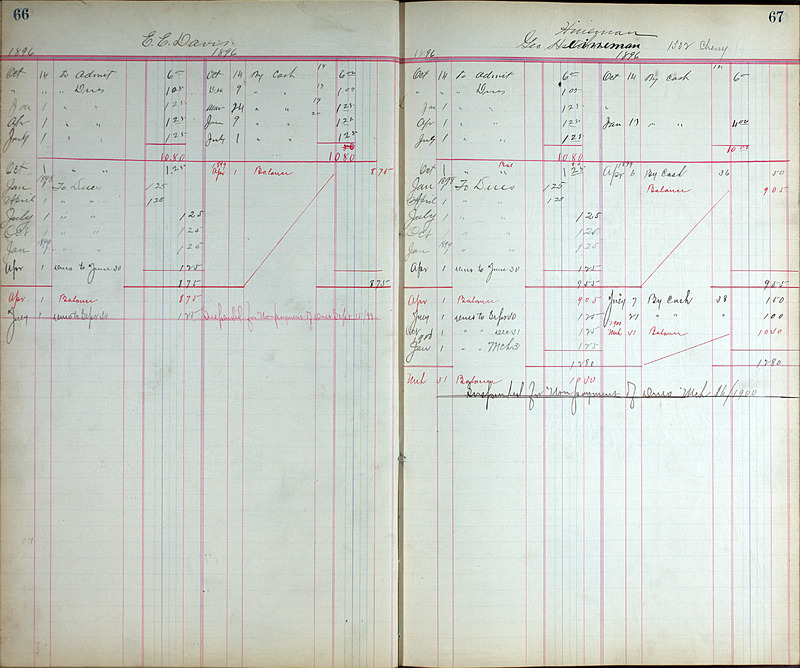 66
E. E. Davis.
1896 1896
Oct 14 To Admit 6 00 Oct 14 By Cash 6 00
" " " Dues 1 05 Dec 9 " " 1 05
Jan 1 " " 1 25 Mar 24 " " 19 1 25
Apr 1 " " 1 25 Jun 9 " " 20 1 25
July 1 " " 1 25 July 1 " " 1 25
10 80 10 80
Oct 1 " " 1 25 1899 Apr 1 Balance 8 75
Jan 1898 1 To Dues 1 25
April 1 " " 1 25
July 1 " " 1 25
Oct 1 " " 1 25
Jan 1899 " " 1 25
Apr 1 dues to June 30 1 25
8 75 8 75
Apr 1 Balance 8 75
July 1 dues to Sepr 30 1 25 Suspended for Non payment of Dues Sept 15/99
67
Hinsman
Geo H 1302 Cherry
1896 1896
Oct 14 To Admit 6 00 Oct 14 By Cash 6 00
" " " Dues 1 05
Jan 1 " " 1 25
Apr 1 " " 1 25 Jan 13 " " 4 00
July 1 " " 1 25
10 80 10 00
Oct 1 " " Bal 1 25 1899 Apr 6 By Cash 36 50
Jan 1898 1 To Dues 1 25 Balance 9 05
April 1 " " 1 25
July 1 " " 1 25
Oct 1 " " 1 25
Jan 1899 " " 1 25
Apr 1 dues to June 30 1 25
9 55 9 55
Apr 1 Balance 9 05 July 7 By Cash 38 1 50
July 1 dues to Sepr 30 1 25 " 21 " " " 1 00
Oct 1 " " Dec 31 1 25 1900 Mch 31 Balance 10 30
Jan 1900 1 " " Mch 31 1 25
12 80 12 80
Mch 31 Balance 10 30
Suspended for Non payment of Dues Mch 36/1900